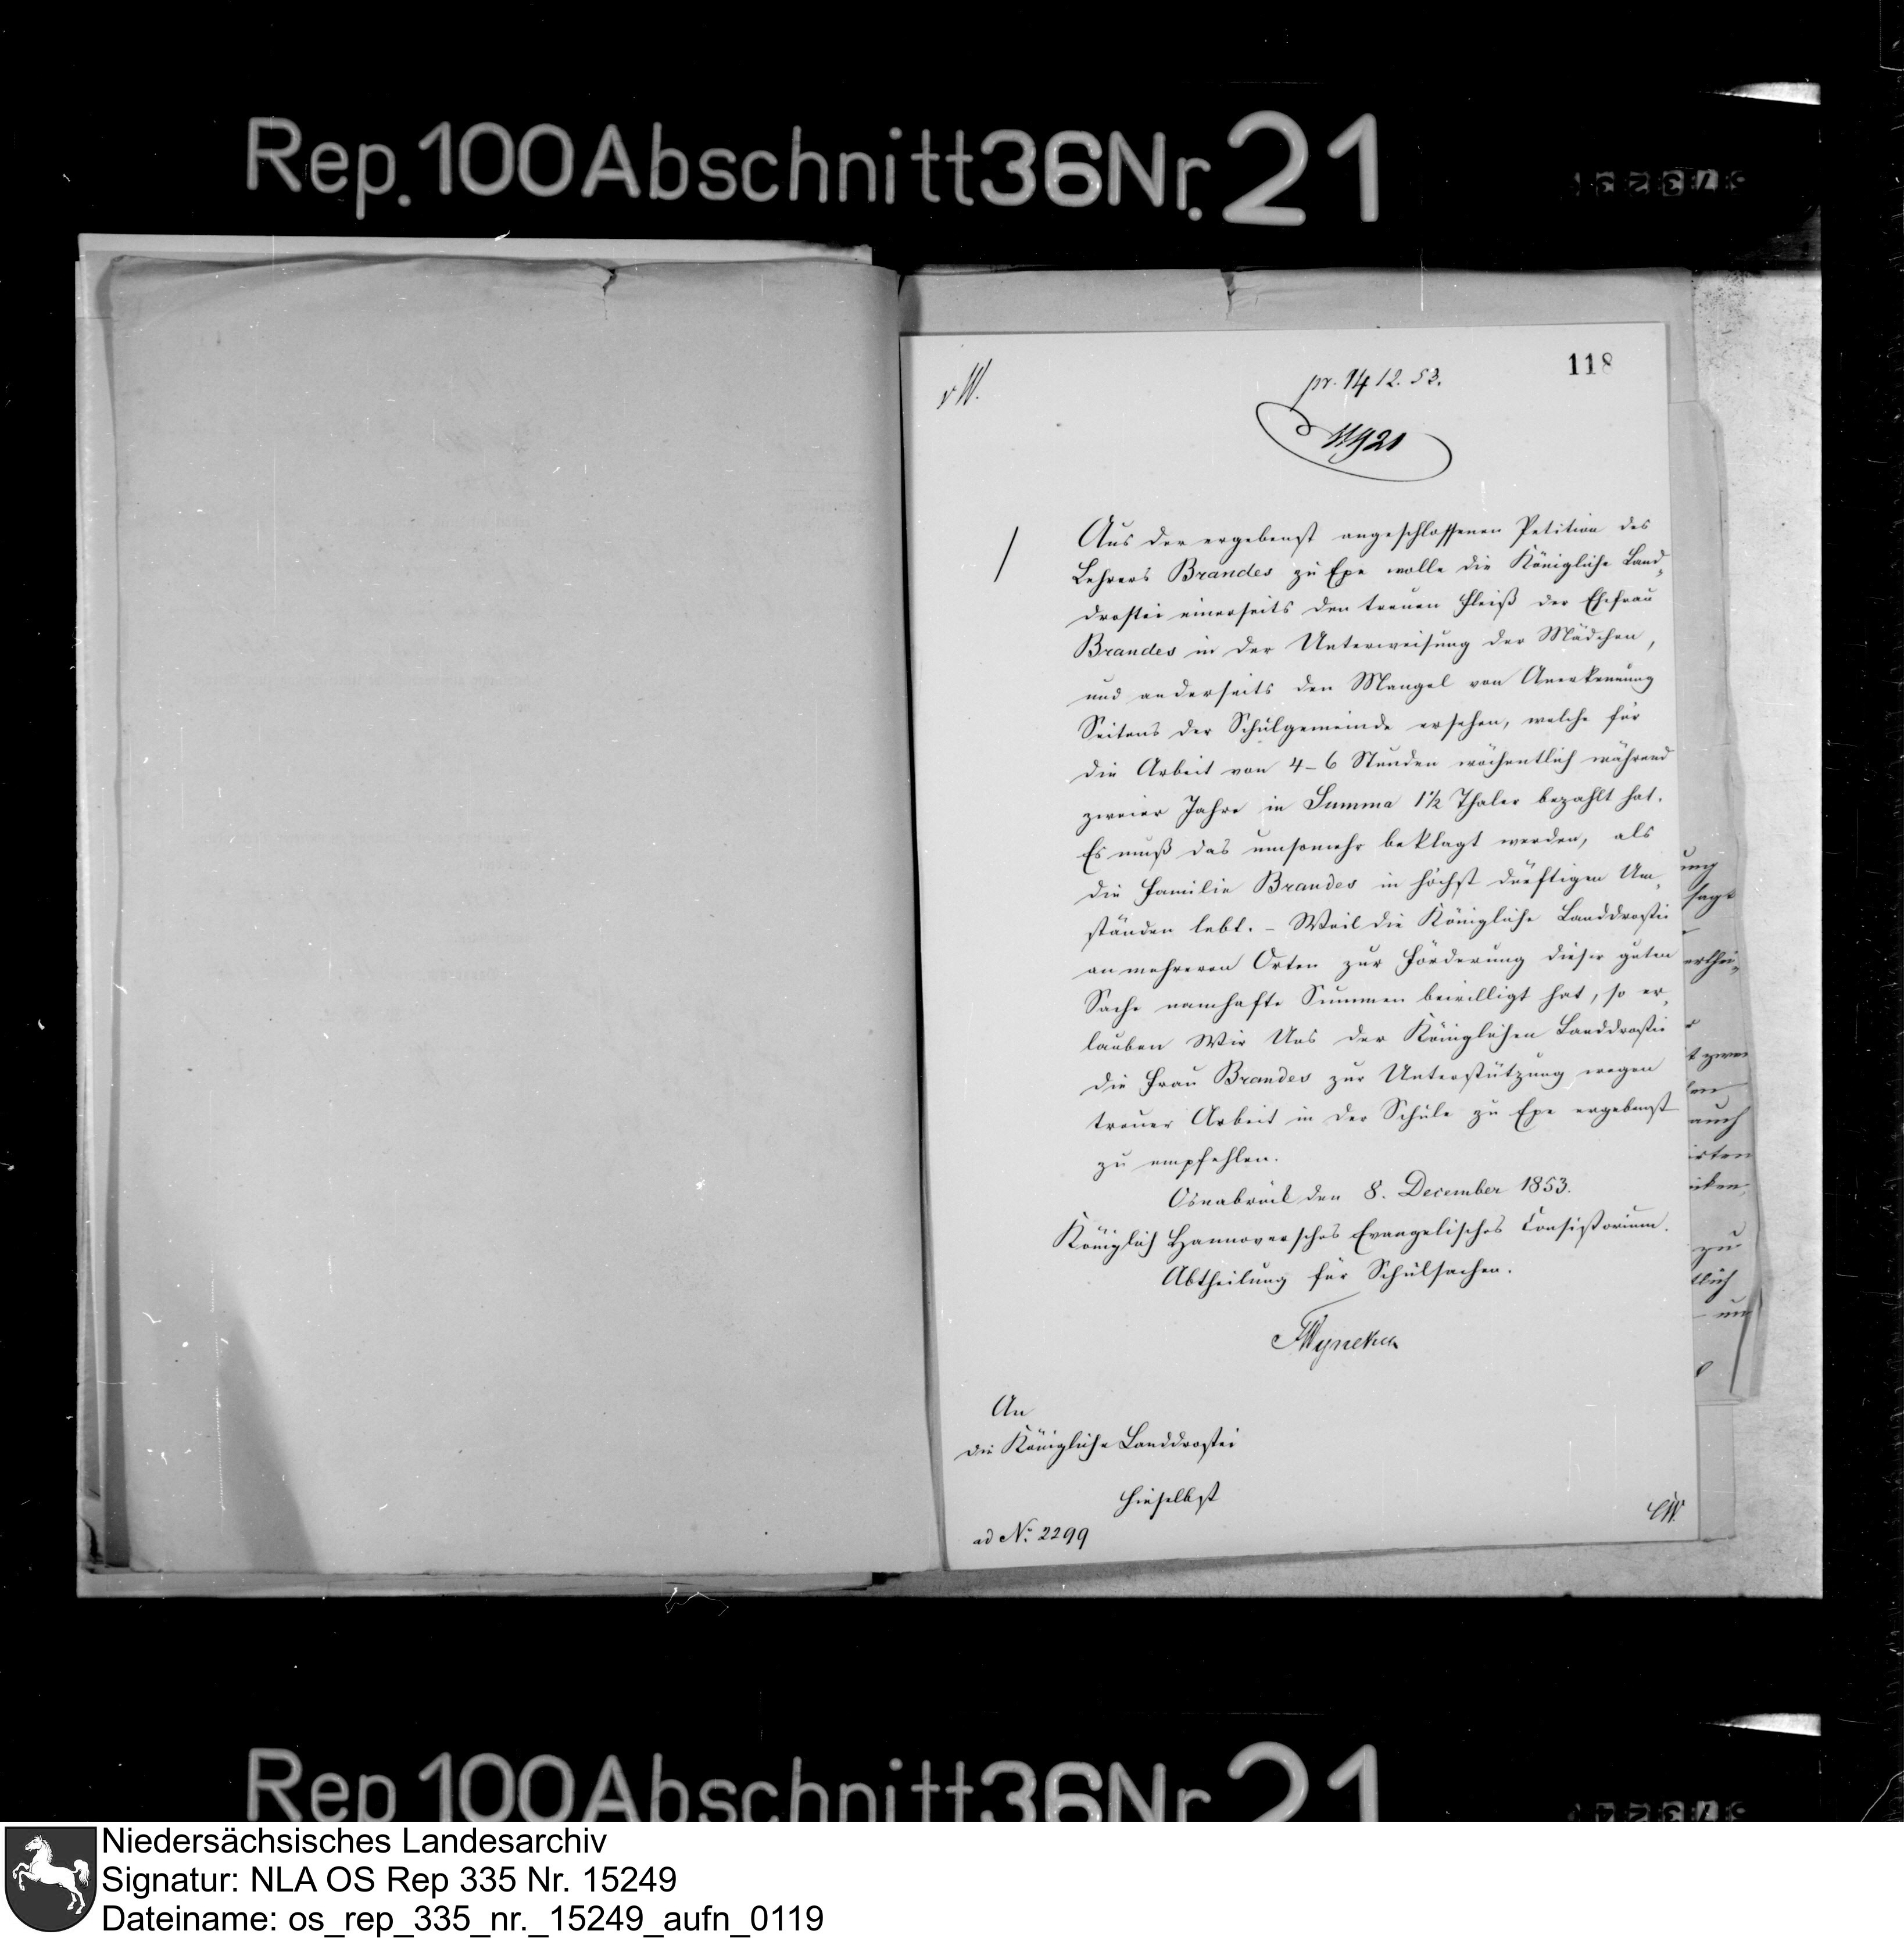 Rep. 100 Abschnitt 36 Nr. 21
118
v W.
pr. 14 12. 53.
11921
Aus der ergebenst angeschlossenen Petition des
Lehrers Brandes zu Epe wolle die Königliche Land¬
drostei einerseits den treuen Fleiß der Ehefrau
Brandes in der Unterweisung der Mädchen,
und anderseits den Mangel von Anerkennung
Seitens der Schulgemeinde ersehen, welche für
die Arbeit von 4–6 Stunden wöchentlich während
zweier Jahre in Summa 1½ Thaler bezahlt hat.
Es muß das umsomehr beklagt werden, als
die Familie Brandes in höchst dürftigen Um¬
ständen lebt. – Weil die Königliche Landdrostei
an mehreren Orten zur Förderung dieser guten
Sache namhafte Summen bewilligt hat, so er¬
lauben Wir Uns der Königlichen Landdrostei
die Frau Brandes zur Unterstützung wegen
treuer Arbeit in der Schule zu Epe ergebenst
zu empfehlen.
Osnabrück den 8. December 1853.
Königlich Hannoversches Evangelisches Consistorium.
Abtheilung für Schulsachen.
An
die Königliche Landdrostei
hieselbst
ad No. 2299
Rep 100 Abschnitt 36 Nr 21
Niedersächsisches Landesarchiv
Signatur: NLA OS Rep 335 Nr. 15249
Dateiname: os_rep_335_nr._15249_aufn_0119